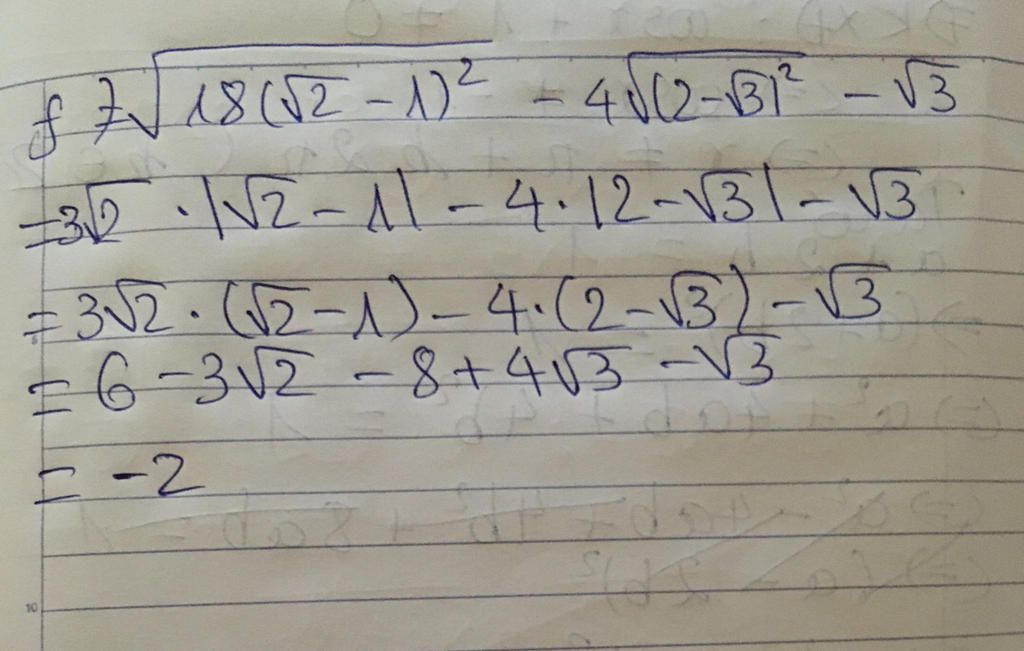 f 7√18(√2 - 1)² - 4√(2-√3)² - √3
= 3√2 · |√2 - 1| - 4 · |2 - √3| - √3
= 3√2 · (√2 - 1) - 4 · (2 - √3) - √3
= 6 - 3√2 - 8 + 4√3 - √3
= -2
10